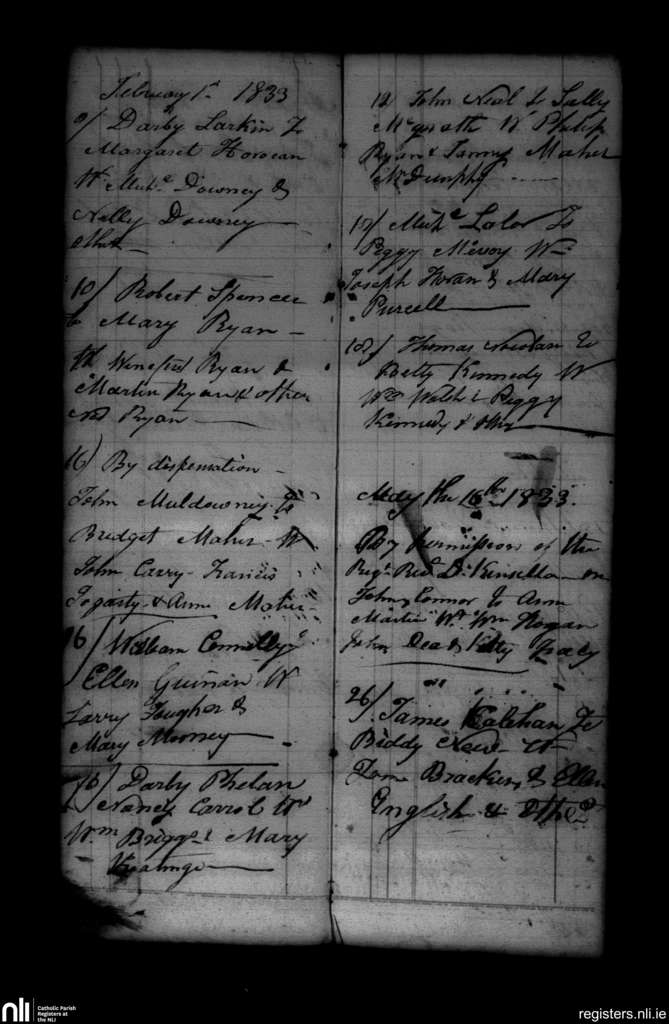 February 1st 1833
9/ Darby Larkin to
Margaret
Wt. Michl Downey &
Nelly Downey
other
10/ Robert Spencer
to Mary Ryan
Wt Winefred Ryan &
Martin Ryan & other
Ned Ryan
16) By dispensation
John Muldowney to
Bridget Maher W
John Carry Francis
Fogarty & Anne Maher
16/ William Connelly to
Ellen Guinan W
Larry Tougher &
Mary Mooney
18/ Darby Phelan
Nancy Carrol Wt
Wm Briggs & Mary
12 John Neal to Sally
McGrath W Philip
Ryan & James Maher
McDunphy
17/ Michl Lalor to
Peggy McEvoy Wt
Joseph Horan & Mary
Purcell
18/ Thomas Nowlan to
Betty Kennedy W
Wm Walsh & Peggy
Kennedy & other
May the 16th 1833.
By permission of the
Rigt Revd Dr Kinsella
John Connor to Anne
Wt Wm Hogan
John Dea & Kitty
26/ James Calahan to
Biddy W
Tom Bracken & Ellen
English & others
nli
Catholic Parish
Registers at
the NLI
registers.nli.ie